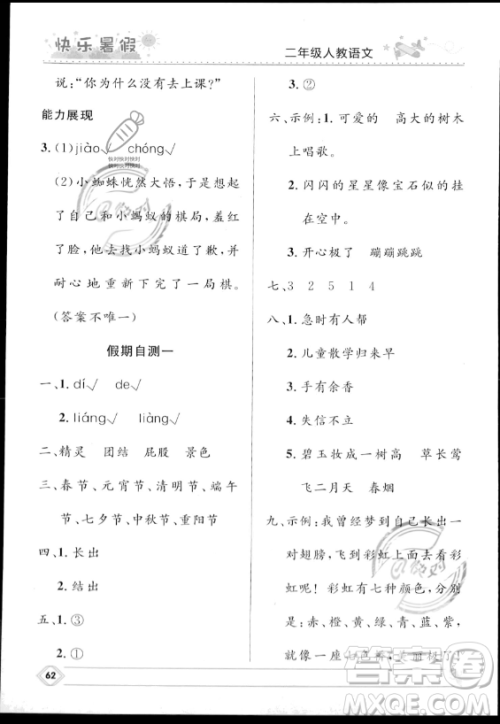 快乐暑假
二年级人教语文
说：“你为什么没有去上课？”
能力展现
3. (1)jiào√ chóng√
(2)小蜘蛛恍然大悟，于是想起
了自己和小蚂蚁的棋局，羞红
了脸，他去找小蚂蚁道了歉，并
耐心地重新下完了一局棋。
(答案不唯一)
假期自测一
一、1. dí√ de√
2. liáng√ liàng√
二、精灵 团结 屁股 景色
三、春节、元宵节、清明节、端午
节、七夕节、中秋节、重阳节
四、1. 长出
2. 结出
五、1. ③
2. ①
3. ②
六、示例：1. 可爱的 高大的树木
上唱歌。
2. 闪闪的星星像宝石似的挂
在空中。
3. 开心极了 蹦蹦跳跳
七、3 2 5 1 4
八、1. 急时有人帮
2. 儿童散学归来早
3. 手有余香
4. 失信不立
5. 碧玉妆成一树高 草长莺
飞二月天 春烟
九、示例：我曾经梦到自己长出一
对翅膀，飞到彩虹上面去看彩
虹呢！彩虹有七种颜色，分别
是：赤、橙、黄、绿、青、蓝、紫，
就像一座
62
答案圈
MXQE.COM